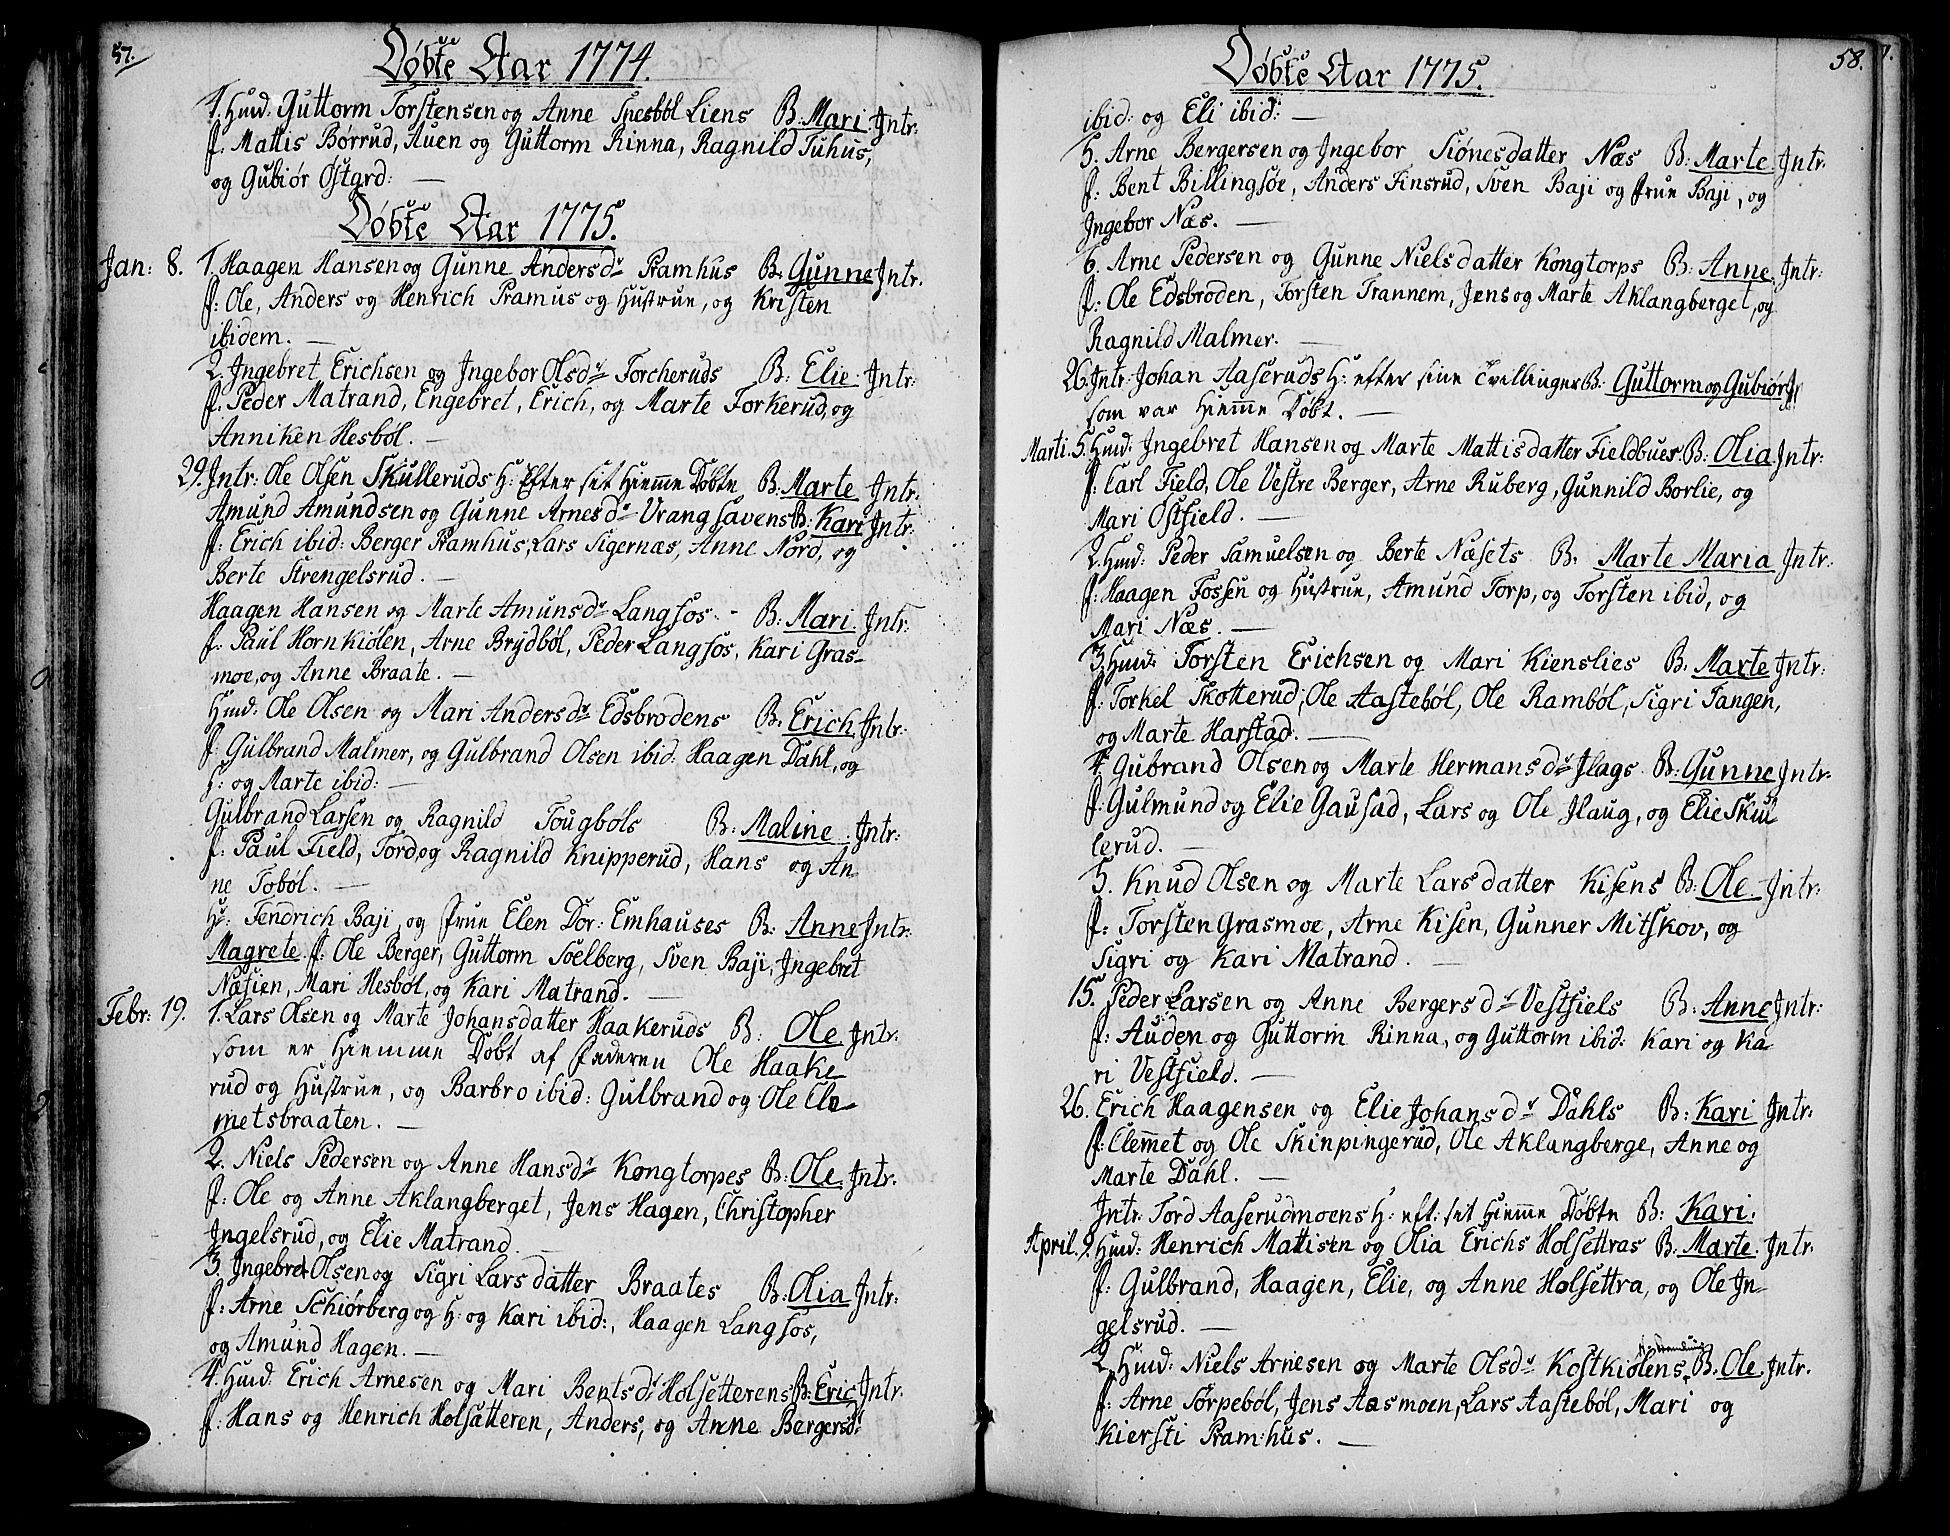 57.
Döbte Aar 1774.
1. Huusd: Guttorm Torstensen og Anne Spesböl Liens B: Mari. Intr:
F. Mattis Börrud, Auen og Guttorm Rinna, Ragnild Tuhus,
og Gubiör Östgrd: —
Döbte Aar 1775.
Jan: 8. 1. Haagen Hansen og Gunne Andersdr Pramhus B: Gunne Intr.
F: Ole, Anders og Henrich Pramus og Hustrue, og Kristen
ibidem. —
2. Ingebret Erichsen og Ingebor Olsdr Torcheruds B: Elie. Intr:
F. Peder Matrand, Engebret, Erich, og Marte Torkerud, og
Anniken Hesböl. —
29. Intr: Ole Olsen Skulleruds H: Efter sit Hiemme Döbte B: Marte Intr:
Amund Amundsen og Gunne Arnesdr Vrangsavens B: Kari Intr:
F: Erich ibid: Berger Pramhus, Lars Sigernæs, Anne Nord, og
Berte Strengelsrud. —
Haagen Hansen og Marte Amunsdr Langsos. - B: Mari. Intr:
F: Paul Hornkiölen, Arne Brÿdböl, Peder Langsos, Kari Gras-
moe, og Anne Braate. —
Huusd: Ole Olsen og Mari Andersdr Edsbrodens B: Erich Intr:
F: Gulbrand Malmer, og Gulbrand Olsen ibid: Haagen Dahl, og
H: og Marte ibid: —
Gulbrand Larsen og Ragnild Tougböls B: Maline. Intr:
F: Paul Field, Tord, og Ragnild Knipperud, Hans og An-
ne Toböl. —
Hr: Fendrich Baji, og Frue Elen Dor: Emhauses B: Anne Intr:
Magrete. F: Ole Berger, Guttorm Soelberg, Sven Baji, Ingebret
Næsien, Mari Hesböl, og Kari Matrand. —
Febr: 19. 1. Lars Olsen og Marte Johansdatter Haakeruds B: Ole. Intr:
som er Hiemme Döbt af Faderen Ole Haake-
rud og Hustrue, og Barbro ibid: Gulbrand og Ole Cle-
metsbraaten. —
2. Niels Pedersen og Anne Hansdr Kongtorpes B: Ole. Intr.
F: Ole og Anne Aklangberget, Jens Hagen, Christopher
Ingelsrud, og Elie Matrand. —
3. Ingebret Olsen og Sigri Larsdatter Braates B: Olia Intr:
F: Arne Schiörberg og H: og Kari ibid:, Haagen Langsos,
og Amund Hagen. —
4. Huusd: Erich Arnesen og Mari Bentsdr Holsetterens B: Eric Intr:
F: Hans og Henrich Holsætteren, Anders, og Anne Bergersd:
58.
Döbte Aar 1775.
ibid: og Eli ibid: —
5. Arne Bergersen og Ingebor Siönesdatter Næs B: Marte. Intr:
F: Bent Billingsöe, Anders Finsrud, Sven Baji og Frue Baji, og
Ingebor Næs. —
6. Arne Pedersen og Gunne Nielsdatter Kongtorps B: Anne. Intr:
F: Ole Edsbroden, Torsten Trannem, Jens og Marte Aklangberget, og
Ragnild Malmer. —
26. Intr: Johan Aaseruds H: efter sine Tvillinger B: Guttorm og Gubiör
som var Hiemme Döbt. —
Marti: 5. Huusd: Ingebret Hansen og Marte Mattisdatter Fieldbues B: Olia. Intr:
F: Carl Field, Ole Vestre Berger, Arne Ruberg, Gunnild Borlie, og
Mari Östfield. —
2. Huusd: Peder Samuelsen og Berte Næsets B: Marte Maria Intr:
F: Haagen Fossen og Hustrue, Amund Torp, og Torsten ibid, og
Mari Næs. —
3. Huusd: Torsten Erichsen og Mari Kienslies B: Marte Intr:
F: Torkel Skotterud, Ole Aasteböl, Ole Ramböl, Sigri Tangen,
og Marte Harstad. —
4. Gubrand Olsen og Marte Hermansdr Ilags B: Gunne. Intr:
F: Gulmund og Elie Gausad, Lars og Ole Ilaug, og Elie Skul
lerud. —
5. Knud Olsen og Marte Larsdatter Kisens B: Ole. Intr:
F: Torsten Grasmoe, Arne Kisen, Gunner Mitskov, og
Sigri og Kari Matrand. —
15. Peder Larsen og Anne Bergersdr Vestfiels B: Anne Intr:
F: Auden og Guttorm Rinna, og Guttorm ibid: Kari og Ka-
ri Vestfield. —
26. Erich Haagensen og Elie Johansdr Dahls B: Kari Intr:
F: Clemmet og Ole Skinpingerud, Ole Aklangberge, Anne og
Marte Dahl. —
Intr: Tord Aaserudmoens H: eft: sit Hiemme Döbte B: Kari.
April. 9. Huusd: Henrich Mattisen og Olia Erichs Holsettras B: Marte. Intr.
F: Gulbrand, Haagen, Elie, og Anne Holsettra, og Ole In-
gelsrud. —
2. Huusd: Niels Arnesen og Marte Olsdr Kostkiölens, B: Ole. Intr.
F: Arne Törpeböl, Jens Aasmoen, Lars Aasteböl, Mari og
Kiersti Pramhus. —